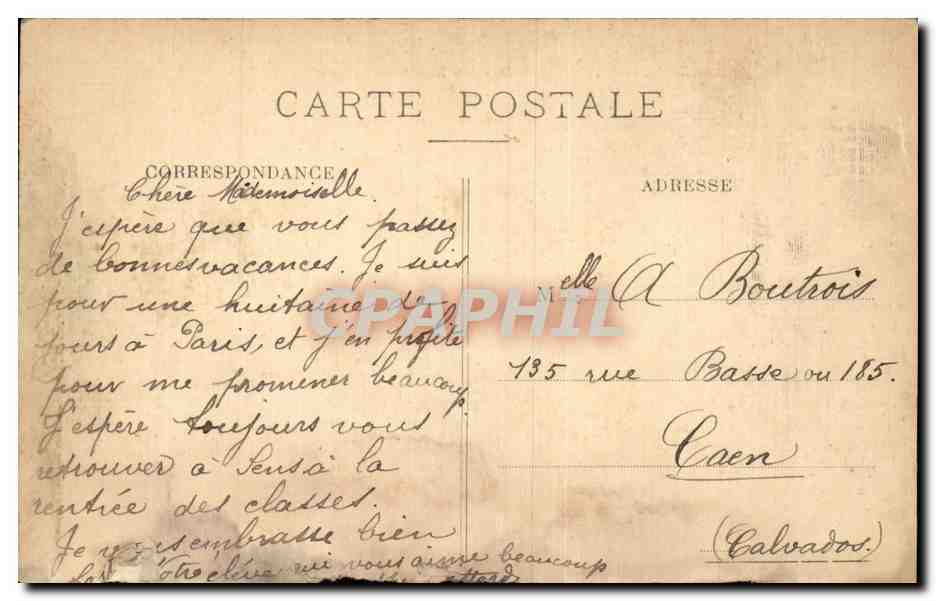 CARTE POSTALE
CORRESPONDANCE
Chère Mademoiselle.
J'espère que vous passez
de bonnes vacances. Je suis
pour une huitaine de
jours à Paris, et j'en profite
pour me promener beaucoup.
J'espère toujours vous
retrouver à Sens à la
rentrée des classes.
Je vous embrasse bien
Votre élève qui vous aime beaucoup
ADRESSE
Melle A Boutrois
135 rue Basse ou 185.
Caen
(Calvados.)
CPAPHIL